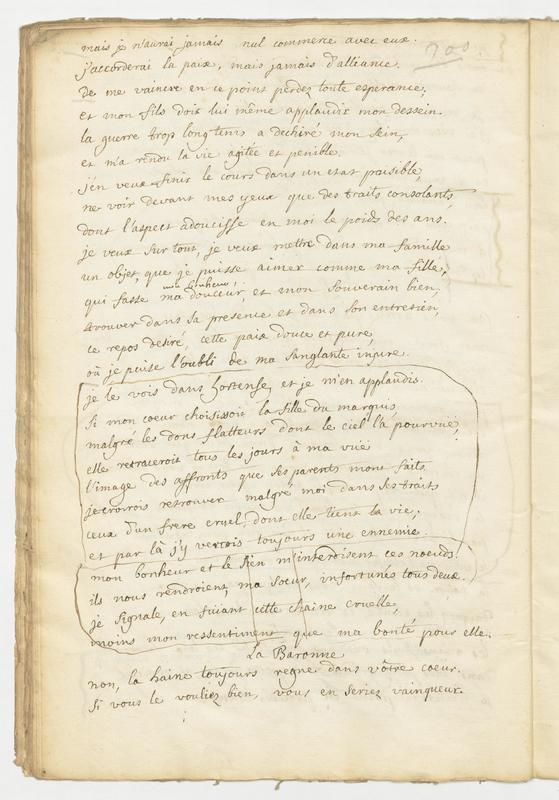 mais je n'aurai jamais nul commerce avec eux.
j'accorderai la paix, mais jamais d'alliance.
de me vaincre en ce point perdez toute esperance,
et mon fils doit lui même applaudir mon dessein.
la guerre trop long tems a dechiré mon sein,
et m'a rendu la vie agitée et penible.
j'en veux finir le cours dans un etat paisible,
ne voir devant mes yeux que des traits consolants,
dont l'aspect adoucisse en moi le poids des ans.
je veux sur tout, je veux mettre dans ma famille
un objet, que je puisse aimer comme ma fille,
qui fasse ma douceur, et mon souverain bien,
trouver dans sa presence et dans son entretien,
ce repos desiré, cette paix douce et pure,
où je puise l'oubli de ma sanglante injure.
je le vois dans hortense, et je m'en applaudis.
si mon coeur choisissoit la fille du marquis,
malgré les dons flatteurs dont le ciel l'a pourvuë,
elle retraceroit tous les jours à ma vuë
l'image des affronts que ses parents m'ont faits.
je croirois retrouver malgré moi dans ses traits
ceux d'un frere cruel, dont elle tient la vie,
et par là j'y verrois toujours une ennemie.
mon bonheur et le sien m'interdisent ces noeuds.
ils nous rendroient, ma soeur, infortunés tous deux.
je signale, en fuiant cette chaine cruelle,
moins mon ressentiment que ma bonté pour elle.
La Baronne
non, la haine toujours regne dans vôtre coeur.
si vous le vouliez bien, vous en seriez vainqueur.